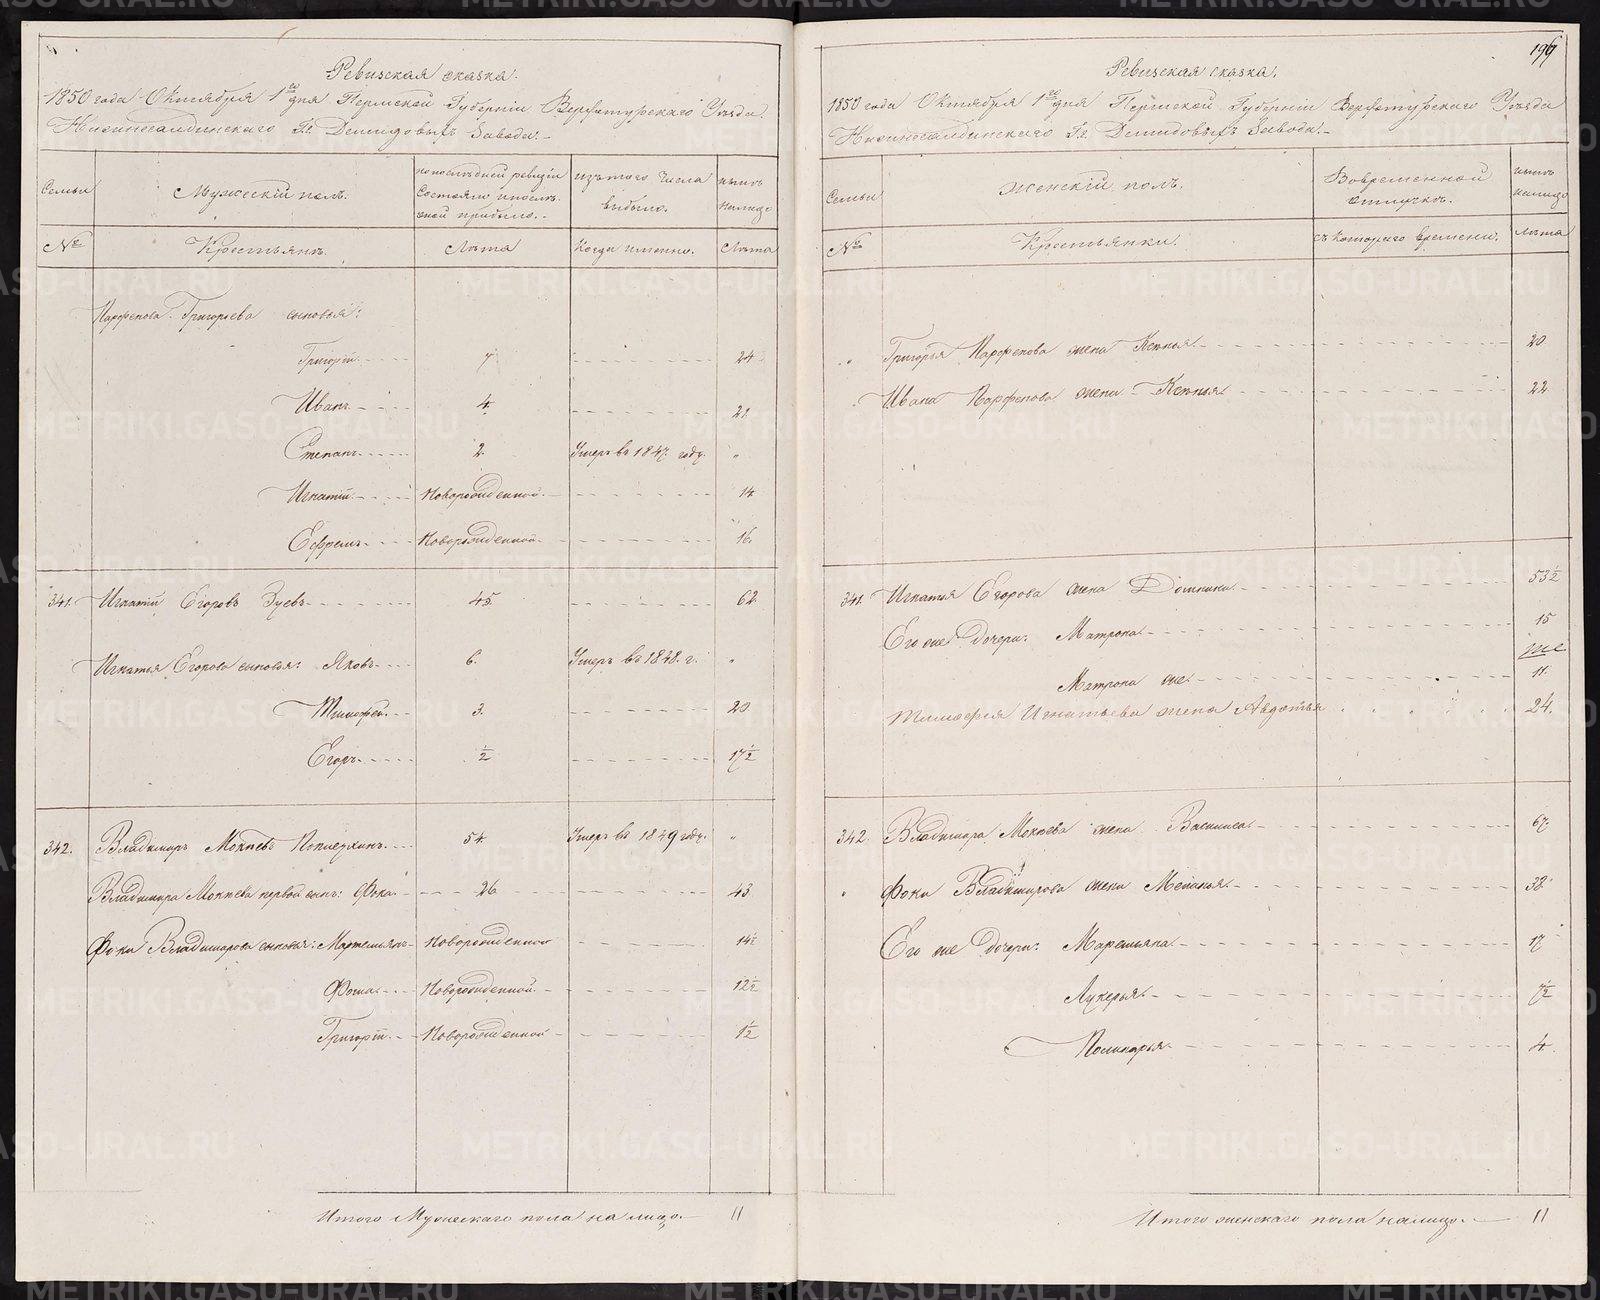 Ревизская сказка.
1850 года Октября 1го дня Пермской Губерніи Верхотурскаго Уѣзда.
Нижнесалдинскаго Гг. Демидовыхъ Завода.
Семьи
Мужескій полъ.
по последней ревизіи состояло и после оной прибыло.
изъ того числа выбыло.
нынѣ налицо
№
Крестьянъ.
Лѣта
Когда именно.
Лѣта
Парфенова Григорьева сыновья:
Григорій 7 24
Иванъ 4 21.
Степанъ 2 Умеръ въ 1847. году. "
Игнатій Новорожденной 14
Ефремъ Новорожденной 16.
341. Игнатій Егоровъ Зуевъ 45 62
Игнатья Егорова сыновья: Яковъ 6. Умеръ въ 1848. г. "
Тимофей 3. 20
Егоръ ½ 17½
342. Владимиръ Мокѣевъ 54. Умеръ въ 1849 году. "
Владимира Мокѣева первой сынъ: Фока 26 43
Фоки Владимирова сыновья: Мартемьянъ Новорожденной 14½
Фома Новорожденной 12½
Григорій Новорожденной 1½
Итого Мужескаго пола на лицо. 11
Ревизская сказка.
1850 года Октября 1го дня Пермской Губерніи Верхотурскаго Уѣзда
Нижнесалдинскаго Гг. Демидовыхъ Завода.
Семьи
Женскій полъ.
Вовременной отлучкѣ.
нынѣ налицо
№
Крестьянки.
съ котораго времени.
Лѣта
Григорья Парфенова жена Ксенья 20
Ивана Парфенова жена Ксенья 22
341. Игнатья Егорова жена Домника 53½
Его же Дочери: Матрона 15
Матрона же 11.
Тимофея Игнатьева жена Авдотья 24.
342. Владимира Мокѣева жена Василиса 67
Фоки Владимирова жена Меланья 38
Его же Дочери: Маремьяна 17
Лукерья 7½
4
Итого женскаго пола налицо. 11
METRIKI.GASO-URAL.RU